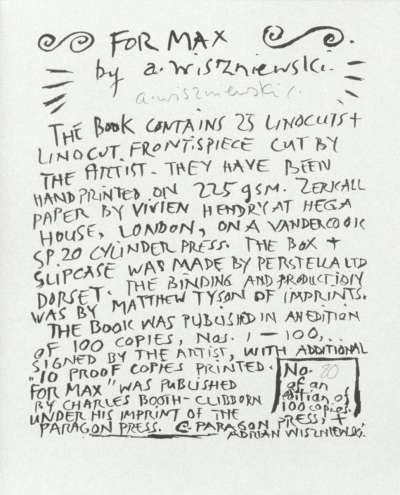 FOR MAX
by a. Wiszniewski.
a. wiszniewski.
THE BOOK CONTAINS 25 LINOCUTS +
LINOCUT. FRONTISPIECE CUT BY
THE ARTIST. THEY HAVE BEEN
HAND PRINTED ON 225 gSM. ZERKALL
PAPER BY VIVIEN HENDRY AT HEGA
HOUSE, LONDON, ON A VANDERCOOK
SP.20 CYLINDER PRESS. THE BOX +
SLIPCASE WAS MADE BY PERSTELLA LTD
DORSET. THE BINDING AND PRODUCTION
WAS BY MATTHEW TYSON OF IMPRINTS.
THE BOOK WAS PUBLISHED IN AN EDITION
OF 100 COPIES, Nos. 1—100,..
SIGNED BY THE ARTIST, WITH ADDITIONAL
"10 PROOF COPIES PRINTED.
FOR MAX" WAS PUBLISHED
BY CHARLES BOOTH-CLIBBORN
UNDER HIS IMPRINT OF THE
PARAGON PRESS. © PARAGON PRESS, +
ADRIAN WISZNIEWSKI.
No. 80
of an
edition of
100 copies.